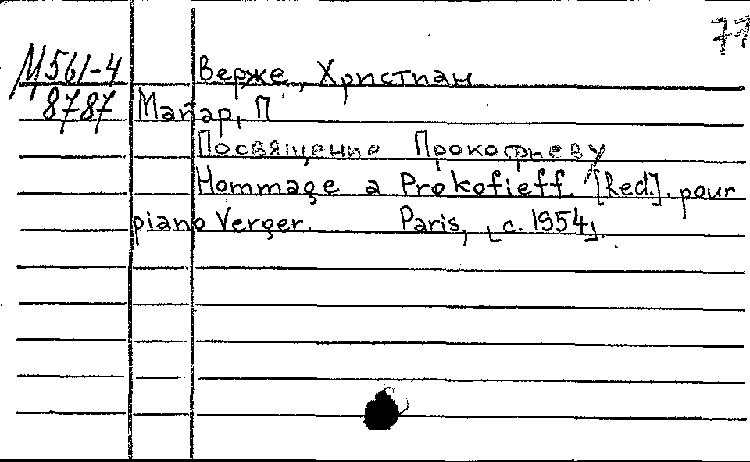 77
М561-4 Верже, Христиан
8787 Маĩар, П
Посвящение Прокофиеву
Hommage a Prokofieff. [Red]. pour
piano Verger. Paris, [c. 1954].